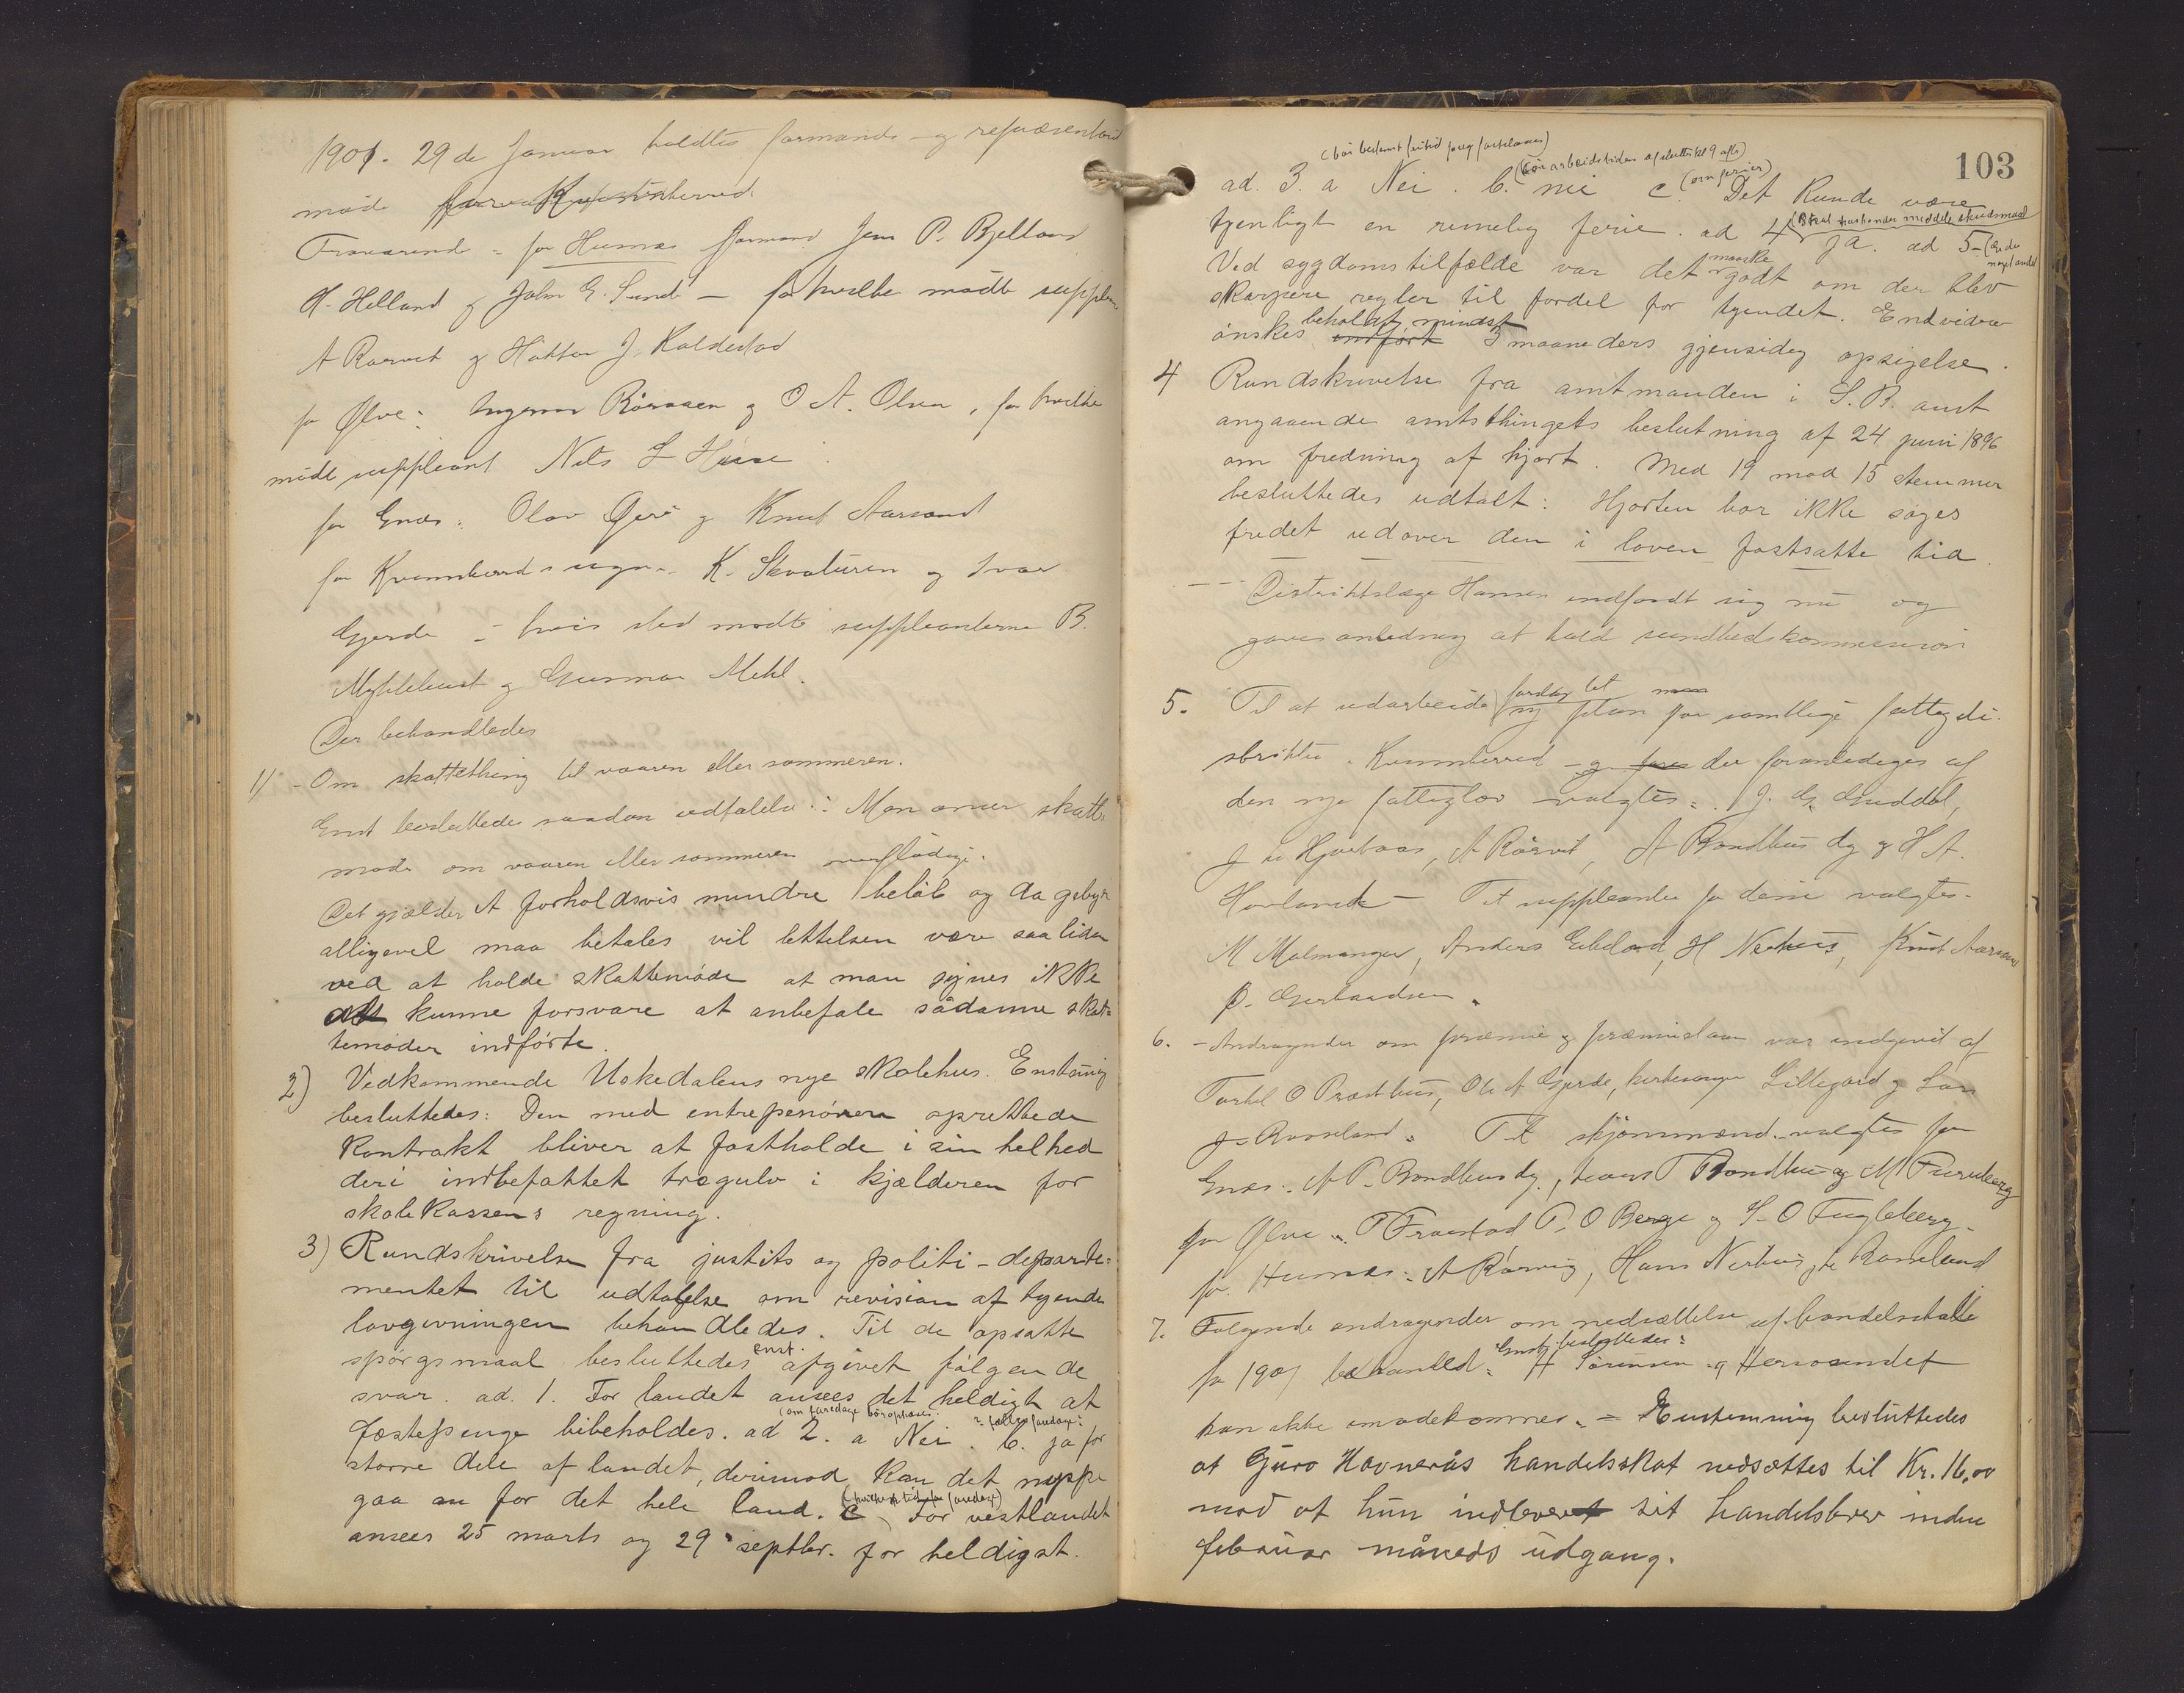 1901. 29de Januar holdtes formands- og repræsentant
møde for Kvinnherred.
Fraværende - for Husnæs formand Jens P. Bjelland
H. Helland og John E. Sunde - for hvilke mødte supplean
A Røsvik og Hatten J. Kaldestad
for Ølve: Ingemar Røssaaen og O A. Olsen, for hvilke
mødte suppleant Nils L Huse
for Enæs: Olav Øyri og Knut Aarsand
for Kvinnherreds sogn - K. Skaaluren og Ivar
Gjerde - hvis sted mødte suppleanterne B.
Myklebust og Gunnar Mehl.
Der behandledes
1) - Om skattething til vaaren eller sommeren.
Enst besluttedes saadan udtalelse: Man anser skatte
møde om vaaren eller sommeren overflødige.
Det gjælder et forholdsvis mindre beløb og da gebyr
alligevel maa betales vil lettelsen være saa liden
ved at holde skattemøde at man synes ikke
at kunne forsvare at anbefale sådanne skat=
temøder indførte.
2) Vedkommende Uskedalens nye skolehus. Enstmig
besluttedes: Den med entreprenøren oprettede
kontrakt bliver at fastholde i sin helhed
deri indbefattet trægulv i kjælderen for
skolekassens regning.
3) Rundskrivelse fra justits og politi-departe=
mentet til udtalelse om revision af tyende
lovgivningen behandledes. Til de opsatte
spørgsmaal besluttedes enst. afgivet følgende
svar. ad. 1. For landet ansees det heldigt at
fæstepenge bibeholdes. ad 2. a (om faredage bør ophæves.) Nei. b. (? fælles faredage:) ja for
større dele af landet, derimod kan det neppe
gaa an for det hele land. c (hvilken tid for faredage) For vestlandet
ansees 25 marts og 29 septbr. for heldigst.
103
ad. 3. a (bør bestemt fritid foreg fastsættes) Nei. b. (Bør arbeidstiden afsluttes kl 9 aft) nei c. (om ferier) Det kunde være
tjenligt en rimelig ferie. ad 4 (Skal husbonder meddele skudsmaal ja. ad 5- (Er der noget andet
Ved sygdomstilfælde var det maaske godt om der blev
skarpere regler til fordel for tyendet. Endvidere
ønskes indført beholdt mindst 3 maaneders gjensidig opsigelse.
4 Rundskrivelse fra amtmanden i S. B. amt
angaaende amtsthingets beslutning af 24 juni 1896
om fredning af hjort. Med 19 mod 15 stemmer
besluttedes udtalt: Hjorten bør ikke søges
fredet udover den i loven fastsatte tid.
Distriktslæge Hansen indfandt sig nu og
gaves anledning at hold sundhedskommission
5. Til at udarbeide forslag til ny plan for samtlige fattigdi-
strikter i Kvinnherred - og der foranlediges af
den nye fattiglov - valgtes: J. G. Guddal,
J H Hjortaas, A Rørvik, A Bondhus dy og H A.
Hovland - Til suppleanter for disse valgtes -
M Malmanger, Anders Eikeland, H Nerhus, Knut Aarsand
P. Gerhardsen.
6. - Andragender om præmie og præmielaan var indgivet af
Torkel O Præsthus, Ole A Gjerde, kirkesanger Lillegård og Lars
J. Rosseland. Til skjønnsmænd valgtes for
Enæs: A T. Bondhus dy, Hans T Bondhus og M Furuberg
for Ølve: T Frøistad P. O Berge og S. O Fugleberg -
for Husnæs: A Rørvig, Hans Nerhus, Rosseland
7. Følgende andragender om nedsættelse af handelsskatte
for 1901 behandled: Enst. besluttedes: H Sørensen og Herøsundet
kan ikke imødekommes. = Enstemmig besluttedes
at Guro Havnerås handelsskat nedsættes til Kr. 16,00
mod at hun indleverer sit handelsbrev inden
februar måneds udgang.